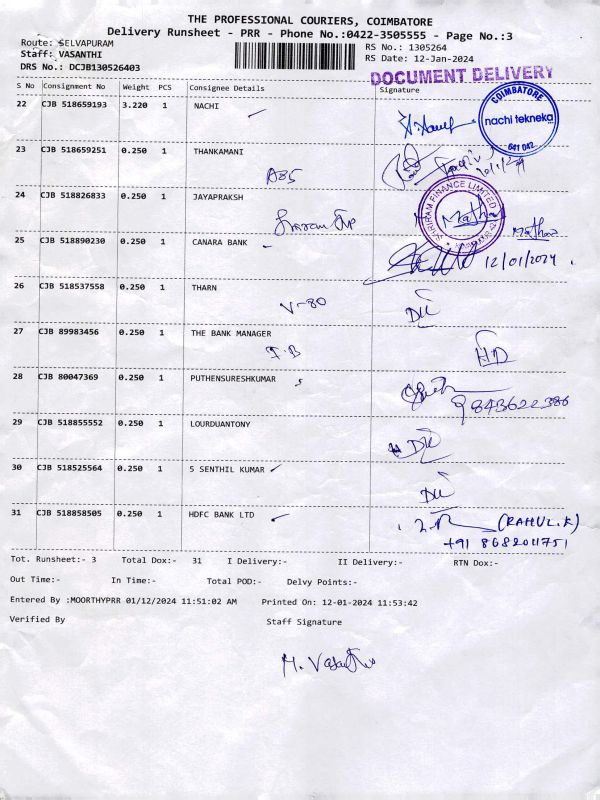 THE PROFESSIONAL COURIERS, COIMBATORE
Delivery Runsheet - PRR - Phone No.:0422-3505555 - Page No.:3
Route: SELVAPURAM
RS No.: 1305264
Staff: VASANTHI
RS Date: 12-Jan-2024
DRS No.: DCJB130526403
DOCUMENT DELIVERY
S No Consignment No Weight PCS Consignee Details Signature
22 CJB 518659193 3.220 1 NACHI
COIMBATORE
nachi tekneka
641 042
23 CJB 518659251 0.250 1 THANKAMANI
A85
24 CJB 518826833 0.250 1 JAYAPRAKSH
SHRIRAM FINANCE LIMITED
25 CJB 518890230 0.250 1 CANARA BANK
12/01/2024
26 CJB 518537558 0.250 1 THARN
V-80
27 CJB 89983456 0.250 1 THE BANK MANAGER
HD
28 CJB 80047369 0.250 1 PUTHENSURESHKUMAR
9843622386
29 CJB 518855552 0.250 1 LOURDUANTONY
30 CJB 518525564 0.250 1 S SENTHIL KUMAR
31 CJB 518858505 0.250 1 HDFC BANK LTD
(RAHUL.K)
+91 8682011751
Tot. Runsheet:- 3 Total Dox:- 31 I Delivery:- II Delivery:- RTN Dox:-
Out Time:- In Time:- Total POD:- Delvy Points:-
Entered By :MOORTHYPRR 01/12/2024 11:51:02 AM Printed On: 12-01-2024 11:53:42
Verified By Staff Signature